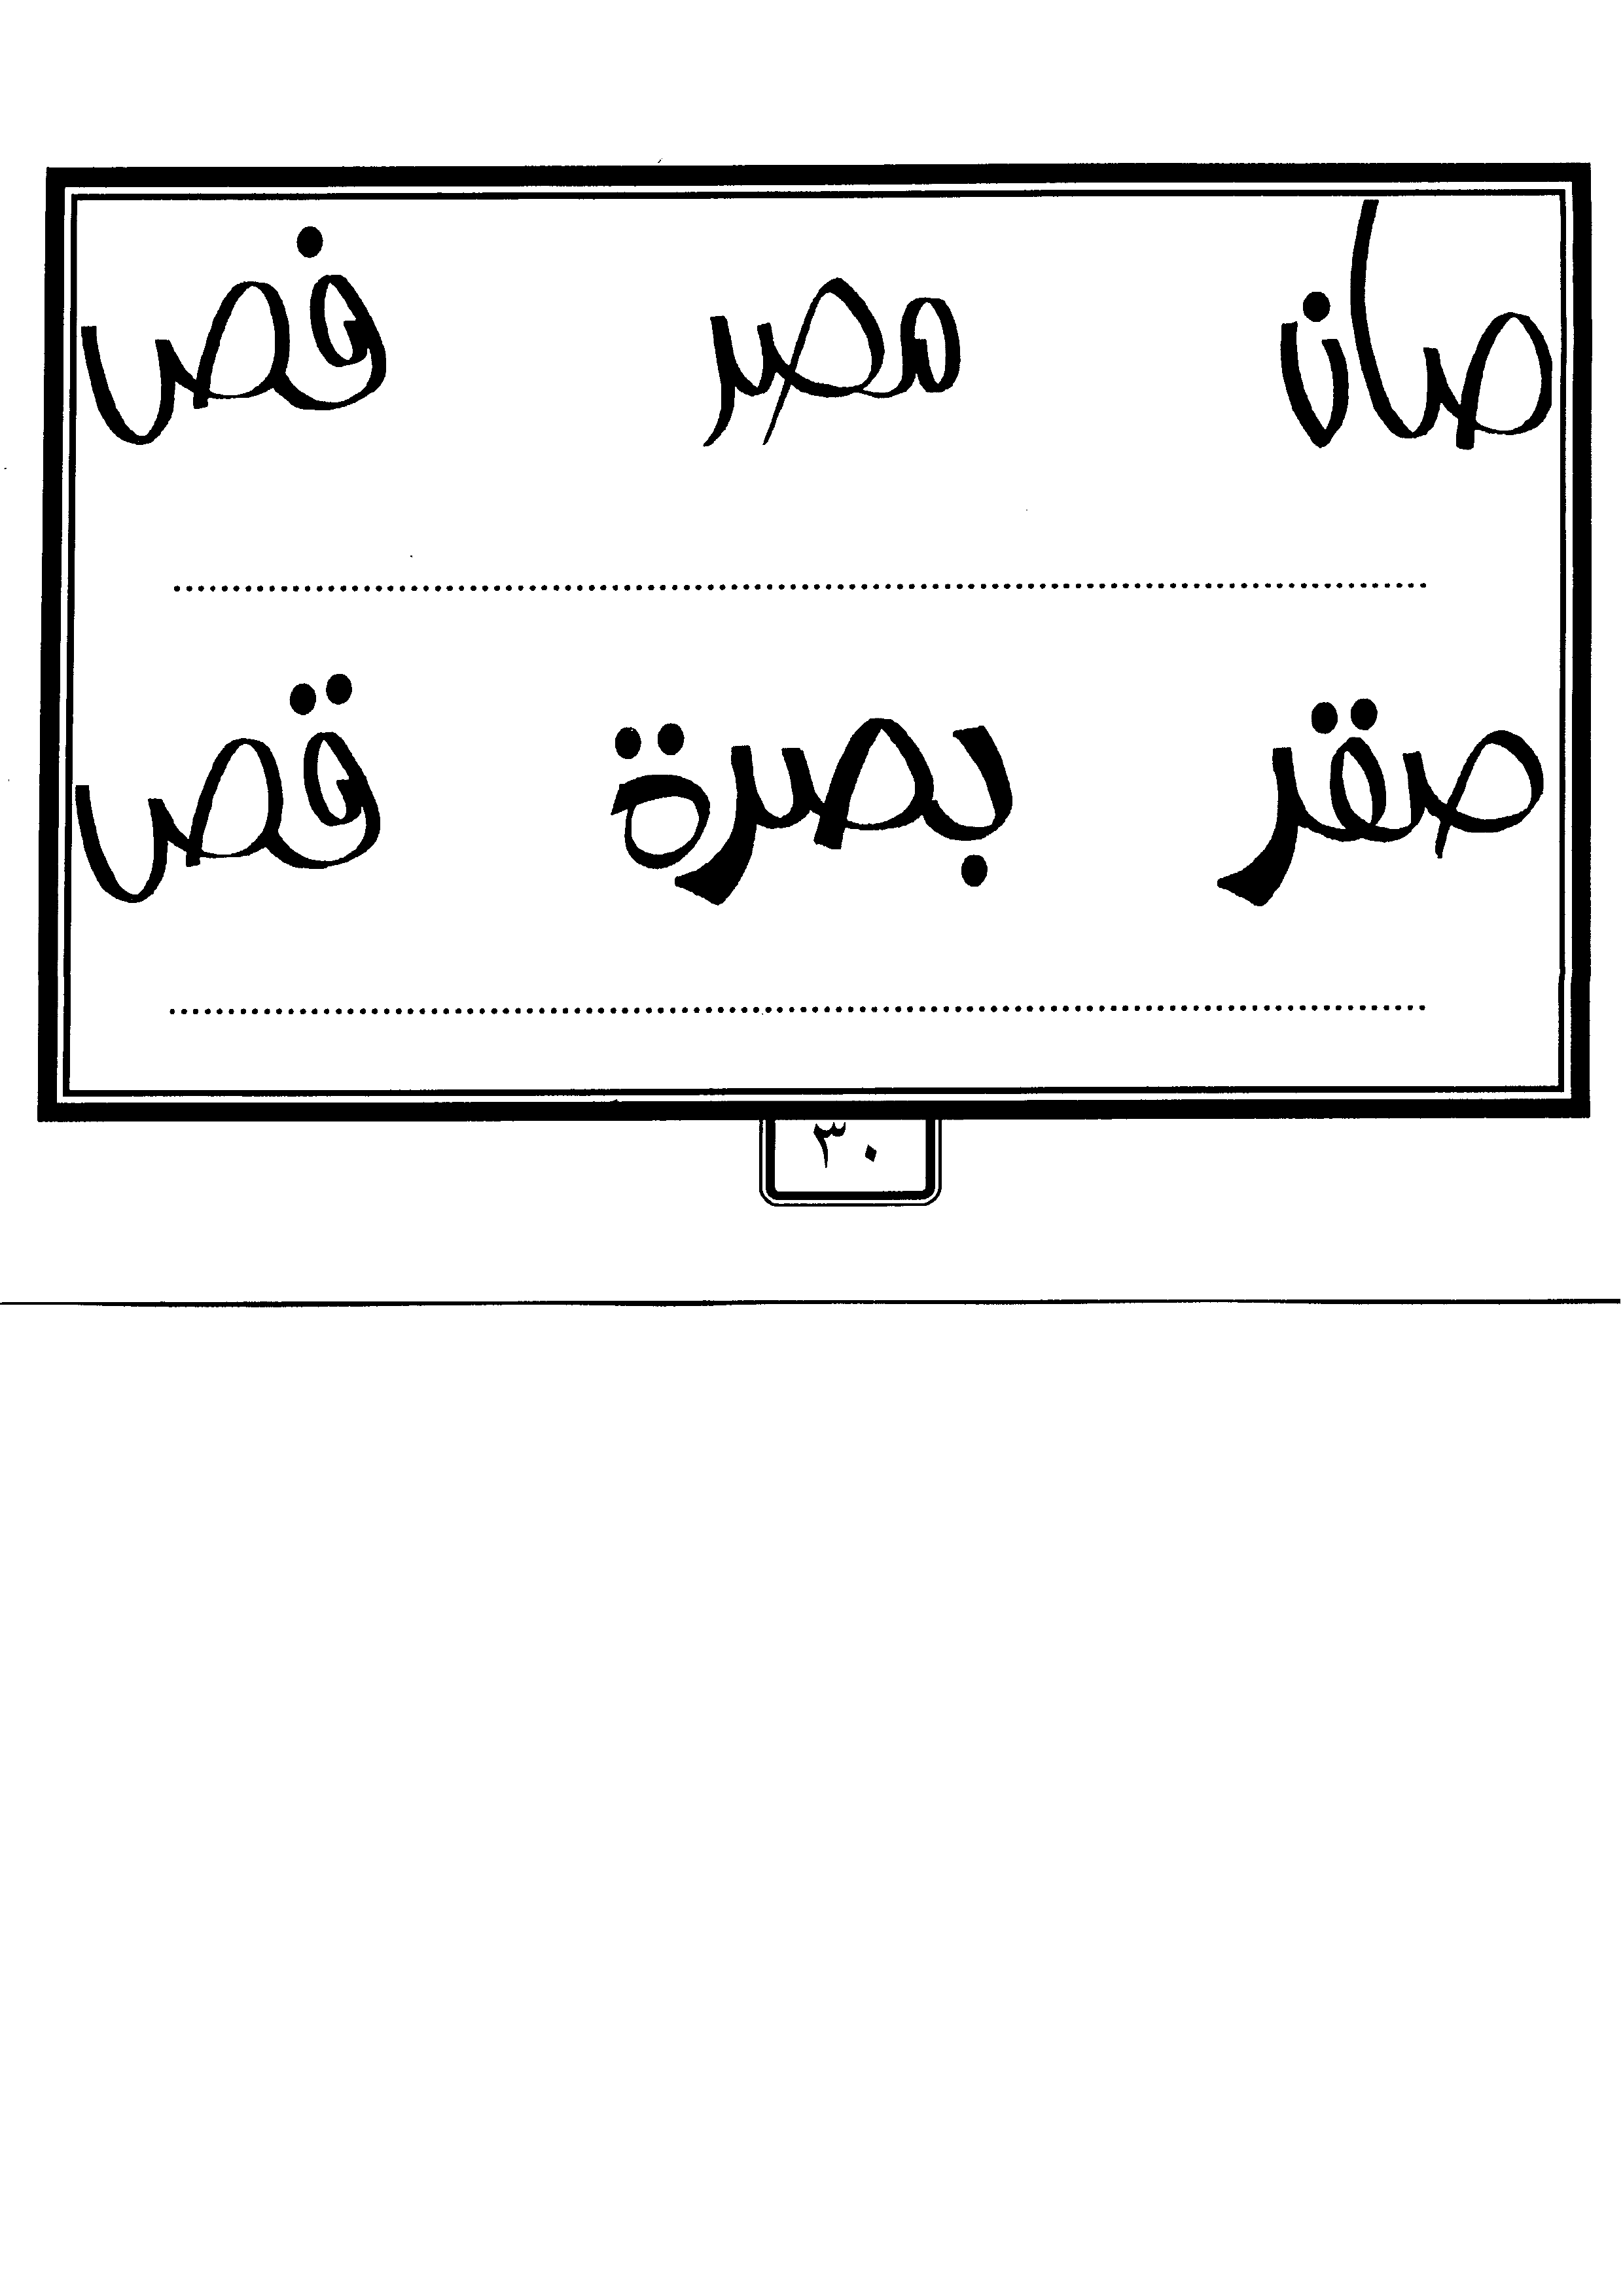 صان مصر فص
صقر بصرة قص
٣٠